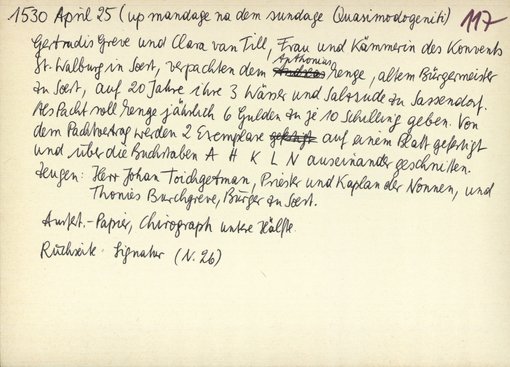 1530 April 25 (up mandage na dem sundage Quasimodogeniti) 117
Gertrudis Greve und Clara van Till, Frau und Kämmerin des Konvents
St. Walburg in Soest, verpachten dem Anthonius Menge, altem Bürgermeister
zu Soest, auf 20 Jahre ihre 3 Wässer und Salzsude zu Sassendorf.
Als Pacht soll Menge jährlich 6 Gulden zu je 10 Schilling geben. Von
dem Pachtvertrag werden 2 Exemplare auf einem Blatt gefertigt
und über die Buchstaben A H K L N auseinander geschnitten.
Zeugen: Herr Johan Toichgetman, Priester und Kaplan der Nonnen, und
Thonies Burchgreve, Bürger zu Soest.
Ausf.-Papier, Chirograph untere Hälfte.
Rückseite: Signatur (N. 26)